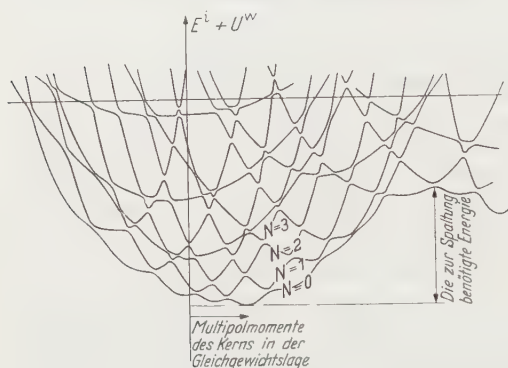 E^i + U^w
N=3
N=2
N=1
N=0
Die zur Spaltung
benötigte Energie
Multipolmomente
des Kerns in der
Gleichgewichtslage